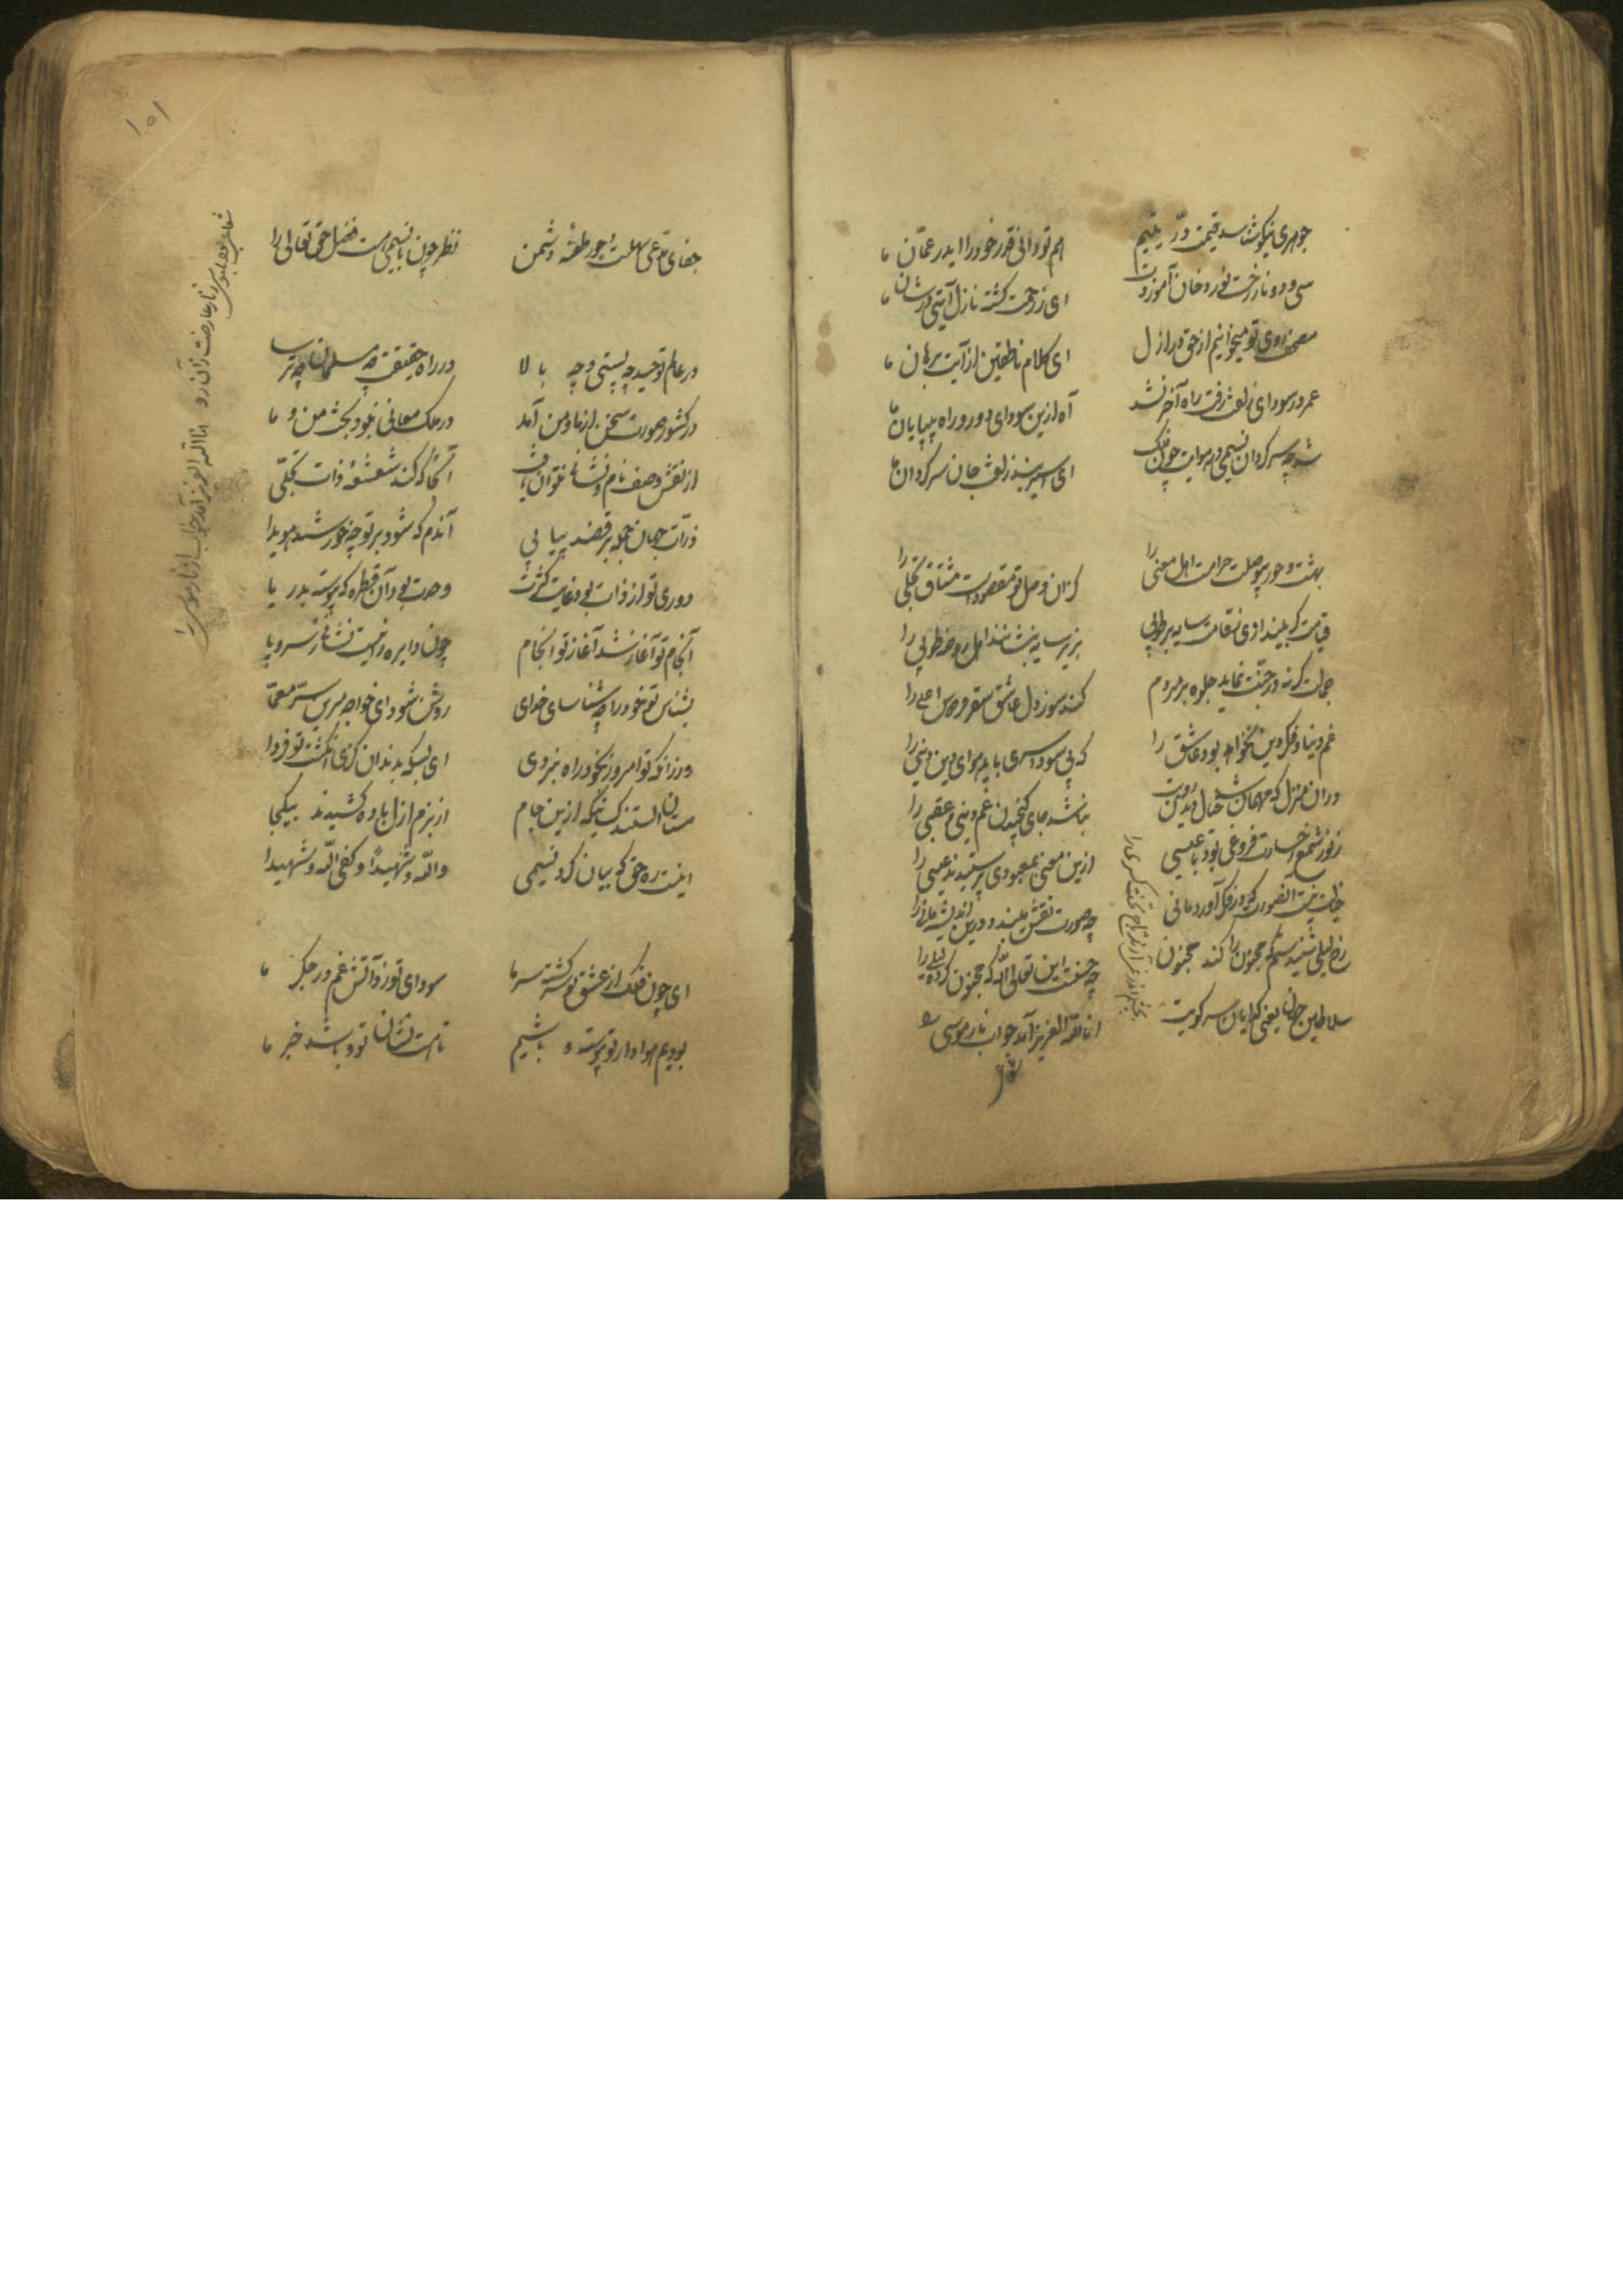 جوهری نیکو شناسد قیمت درّ یتیم
هم تو دانی قدر خود را ای در عمّان ما
سی و دو نار درخت نور رخان آموزدت
ای ز رحمت گشته نازل آیتی در شان ما
مصحف روی تو میخوانیم از حق در ازل
ای کلام ناطقین از آیت برهان ما
عمر در سودای زلفت رفت راه آخر نشد
آه ازین سودای دور و راه بی پایان ما
شد چه سرگردان نسیمی در هوایت چون فلک
ای اسیر بند زلفت جان سرگردان ما
بهشت و حور بی وصلت حرامست اهل معنی را
کزان وصل تو مقصودست مشتاق تجلی را
قیامت گر ببیند اوفتد قامت سایه بر طوبی
بزیر سایه بنشانند اهل روضه طوبی را
جمالت گر نه در جنت نماید جلوه بر مردم
کند سوز دل عاشق سقر فردوس اعلی را
غم دنیا و فکر دین نخواهد بود عاشق را
که بی سودا سری باید هوای دین و دنیی را
در ان منزل که مهمان شد خیال دیدن رویت
نباشد جای گنجیدن غم دنیی و عقبی را
ز نور شمع رخسارت فروغی بود با عیسی
ازین معنی بمعبودی پرستیدند عیسی را
خطت نیست الصورت که در فکر آورد مانی
چه صورت نقش میبندد درین اندیشه مانی را
رخ لیلی شنیدستم که مجنون را کند مجنون
چه حسنست این تعالی الله که مجنون کرده لیلی را
سلاطین جهان یعنی گدایان سر کویت
بچشم اندر نمی آرند تاج و تخت کسری را
انا الله العزیز آمد جواب نار موسی را
۱۵۱
شعاع
ز نار عارضت زان رو انا الله العزیز آمد جواب از نار موسی را
جفای مدّعی سهلست و جور طعنه دشمن
نظر چون با نسیمی هست فضل حق تعالی را
در عالم توحید چه پستی و چه بالا
در راه حقیقت چه مسلمان چه ترسا
در کشور صورت سخن از ما و من آمد
در ملک معانی نبود بحث من و ما
از نقش و صف نام و نشان نتوان یافت
آنجا که کند شعشعه ذات تجلّی
ذرّات جهان جمله برقصند پیاپی
آندم که شود پرتو خورشید هویدا
دوری تو از ذات بود غایت کثرت
وحدت بود آن قطره که پیوسته بدریا
آنجام تو آغاز شد آغاز تو انجام
چون دایره را نیست نشان از سر و پا
بشناس تو خود را که شناسای خدای
روشن شود ای خواجه بتو این سرّ معمّا
ور زانکه تو امروز بخود راه نبردی
ای بس که بدندان گزی انگشت تو فردا
مستان الستند کسانیکه ازین جام
از بزم ازل باده کشیدند بیکجا
اینست ره حق که بیان کرد نسیمی
والله شهیداً و کفی الله شهیدا
ای چون فلک از عشق تو سرگشته سر ما
سودای تو زد آتش غم در جگر ما
بودیم هوادار تو پیوسته و باشیم
تا هست نشان تو و باشد خبر ما